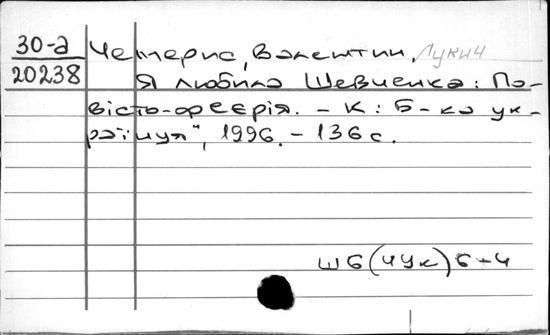 30-а
20238
Чемерис, Валентин, Лукич
Я любила Шевченка: По-
вість-феєрія. - К: Б-ка ук-
раїнця", 1996. - 136 с.
Ш6(4Ук)6-4